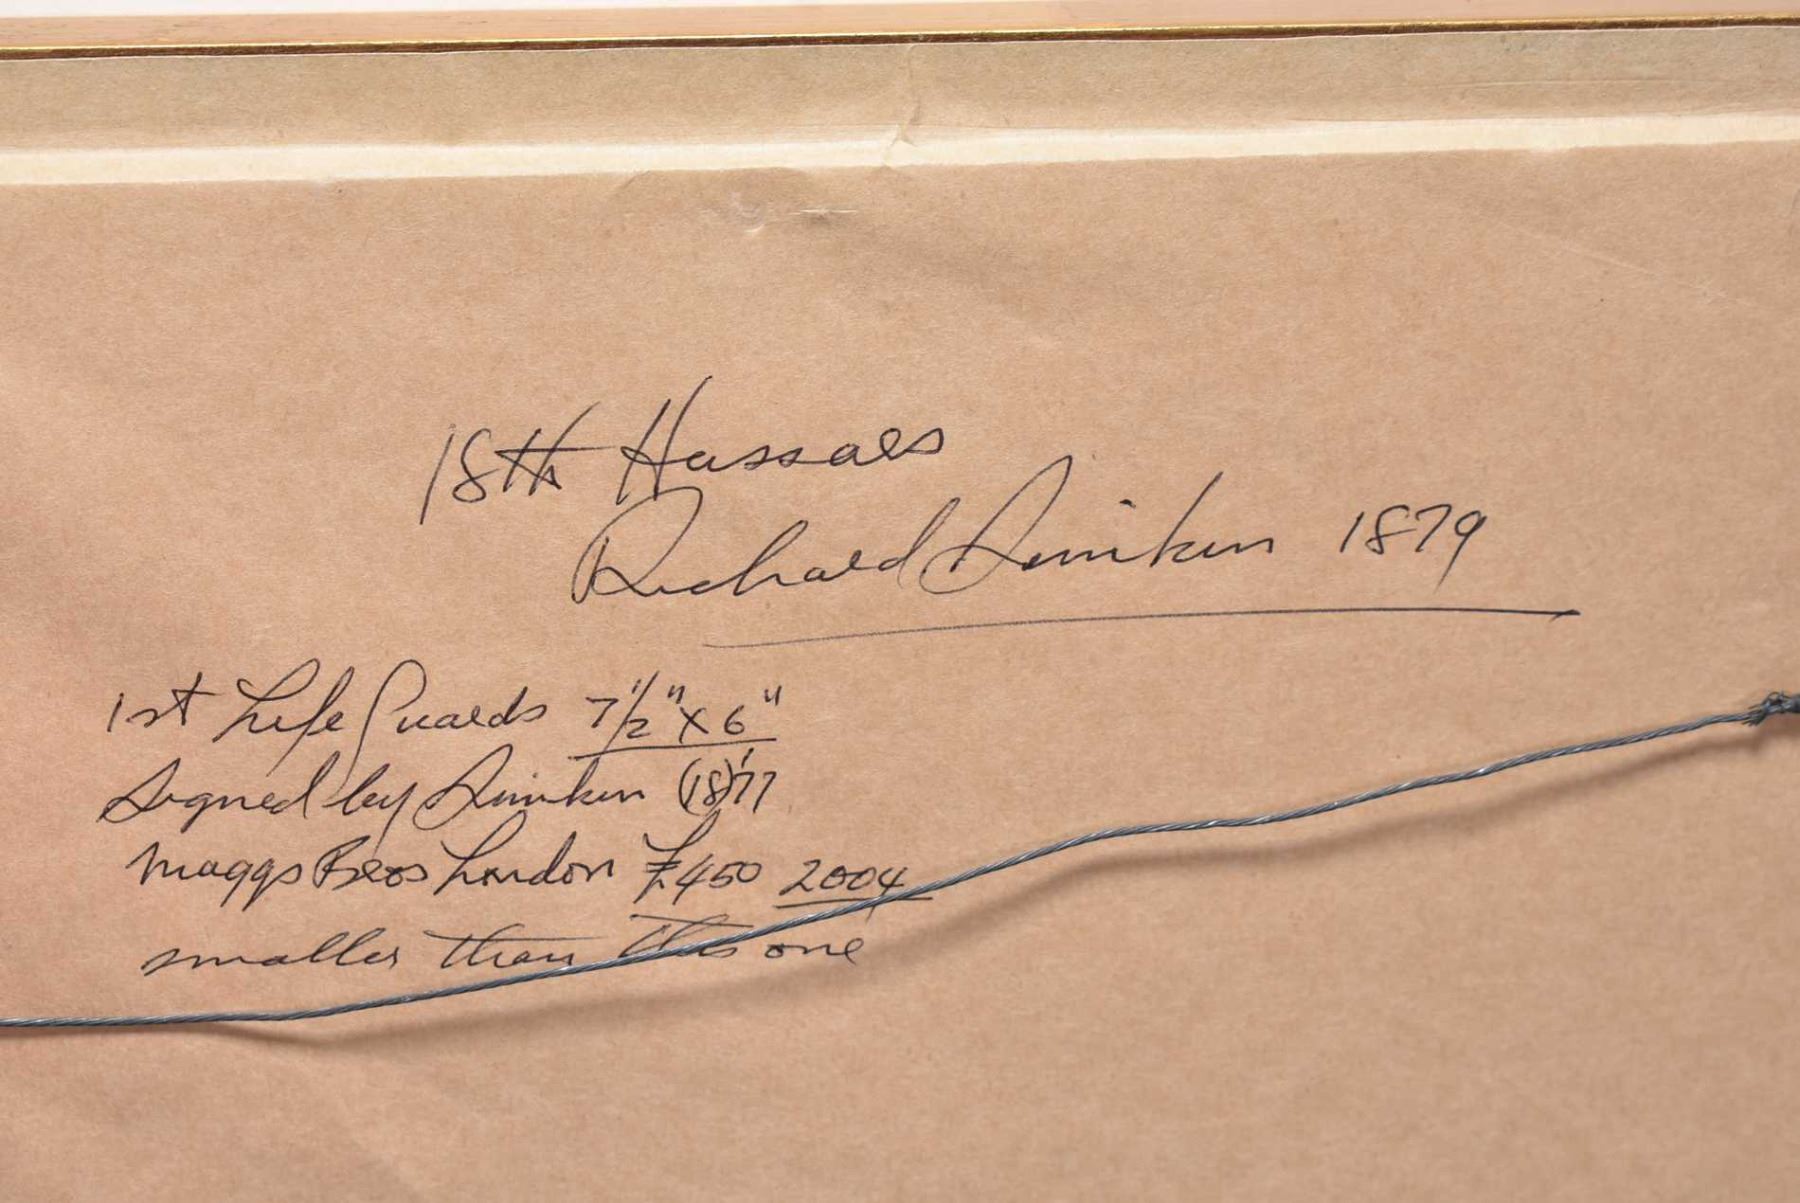 18th Hussars
Richard Simkin 1879
1st Life Guards 7 1/2" x 6"
Signed by Simkin (18)'77
Maggs Bros London £450 2004
smaller than this one